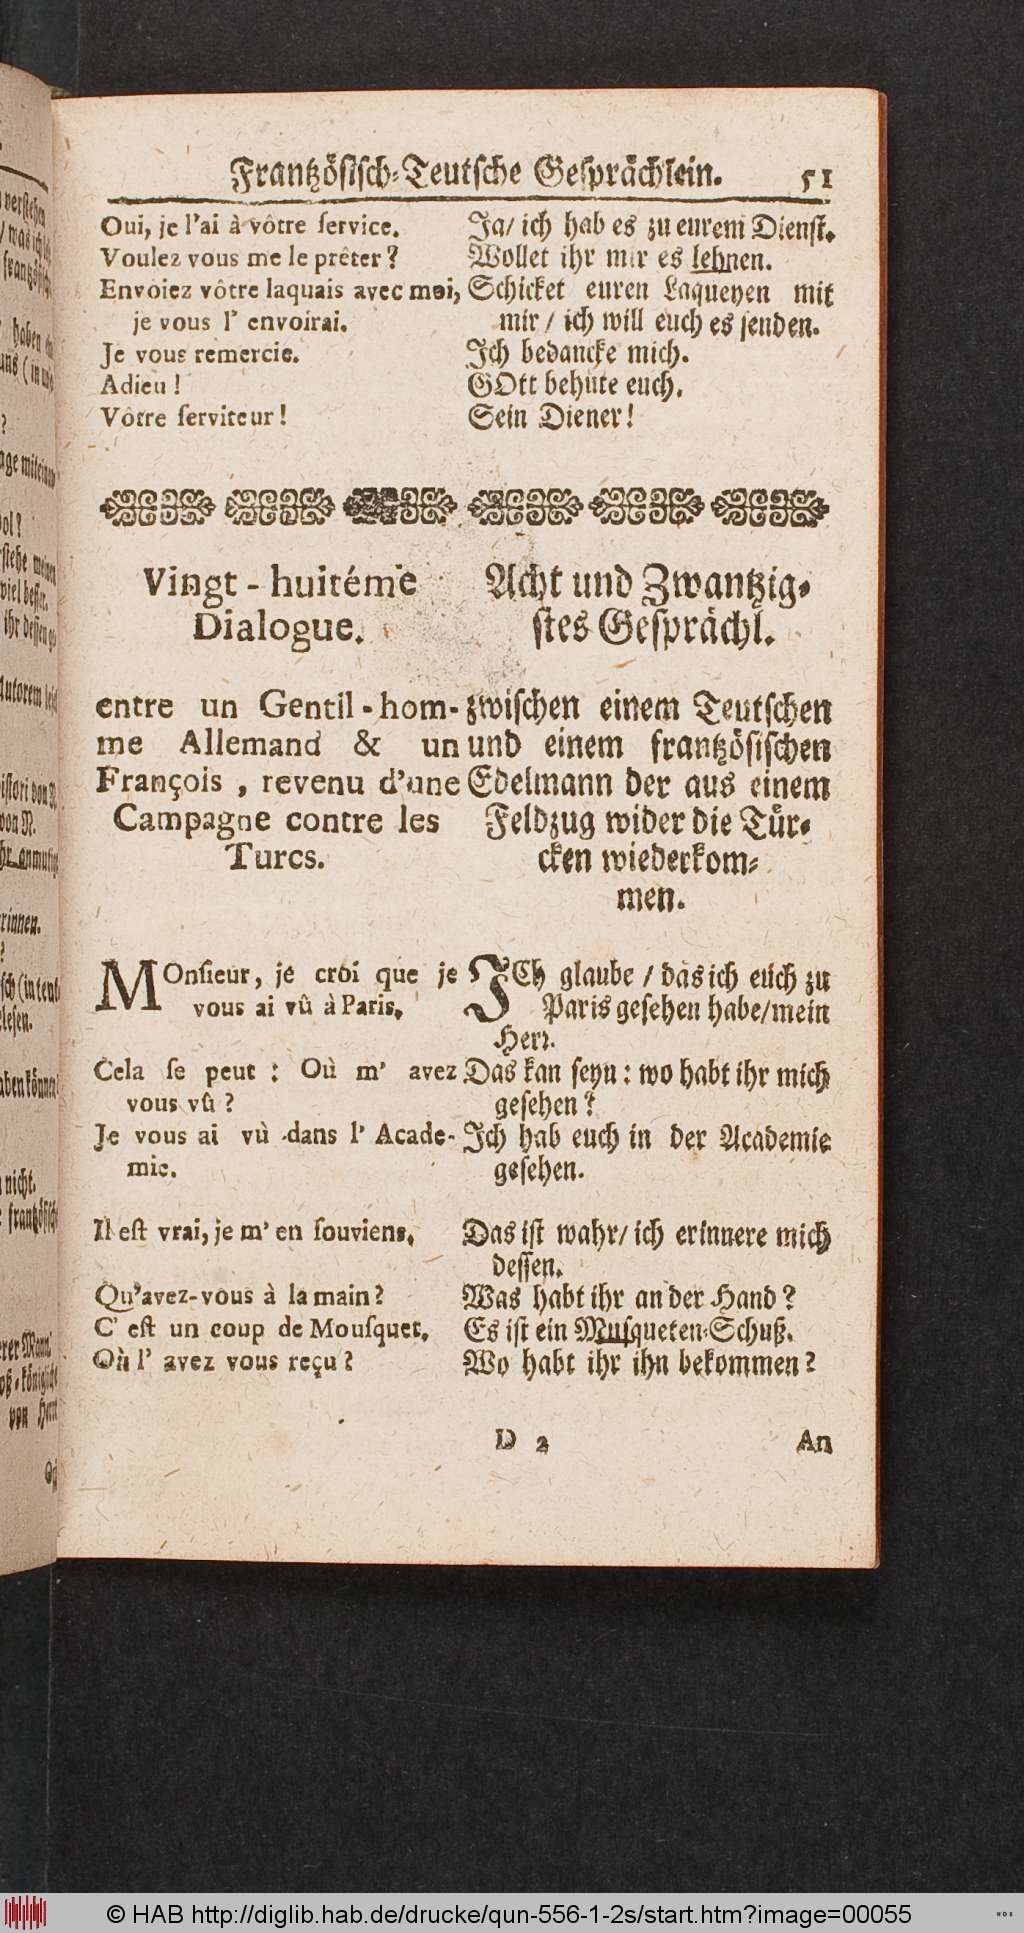 Frantzösisch-Teutsche Gesprächlein. 51
Oui, je l'ai à vôtre ſervice.
Voulez vous me le prêter?
Envoiez vôtre laquais avec moi,
je vous l' envoirai.
Je vous remercie.
Adieu!
Vôtre ſerviteur!
Ja/ ich hab es zu eurem Dienſt.
Wollet ihr mir es lehnen.
Schicket euren Laqueyen mit
mir / ich will euch es ſenden.
Ich bedancke mich.
GOtt behüte euch.
Sein Diener!
Vingt-huitéme
Dialogue.
entre un Gentil-hom-
me Allemand & un
François, revenu d'une
Campagne contre les
Turcs.
Acht und Zwantzig-
ſtes Geſprächl.
zwiſchen einem Teutſchen
und einem frantzöſiſchen
Edelmann der aus einem
Feldzug wider die Tür-
cken wiederkom-
men.
MOnſieur, je croi que je
vous ai vû à Paris.
Cela ſe peut: Où m' avez
vous vû?
Je vous ai vù dans l' Acade-
mie.
Il eſt vrai, je m' en ſouviens.
Qu'avez-vous à la main?
C' eſt un coup de Mouſquet.
Où l' avez vous reçu?
ICh glaube / das ich euch zu
Paris geſehen habe/mein
Herr.
Das kan ſeyn: wo habt ihr mich
geſehen?
Ich hab euch in der Academie
geſehen.
Das iſt wahr/ ich erinnere mich
deſſen.
Was habt ihr an der Hand?
Es iſt ein Muſqueten-Schuß.
Wo habt ihr ihn bekommen?
D 2 An
© HAB http://diglib.hab.de/drucke/qun-556-1-2s/start.htm?image=00055